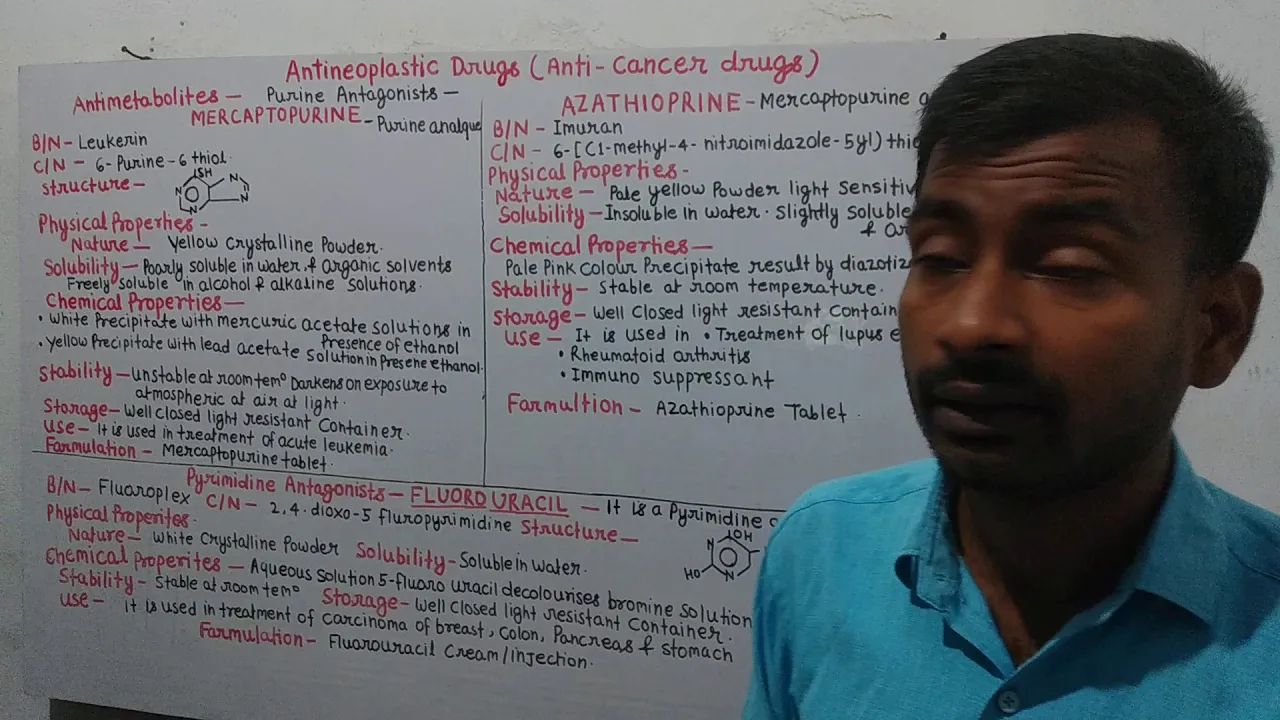 Antineoplastic Drugs (Anti-cancer drugs)
Antimetabolites – Purine Antagonists –
MERCAPTOPURINE – Purine analgue
B/N – Leukerin
C/N – 6-Purine-6 thiol.
Structure –
SH
N
N
N
N
Physical Properties –
Nature – Yellow Crystalline Powder.
Solubility – Poorly soluble in water & Organic solvents
Freely soluble in alcohol & alkaline solutions.
Chemical Properties –
• White Precipitate with mercuric acetate solutions in
Presence of ethanol
• Yellow Precipitate with lead acetate solution in Presene ethanol.
Stability – Unstable at room temº Darkens on exposure to
atmospheric at air at light.
Storage – Well closed light resistant Container.
Use – It is used in treatment of acute leukemia.
Farmulation – Mercaptopurine tablet.
AZATHIOPRINE – Mercaptopurine
B/N – Imuran
C/N – 6-[C1-methyl-4-nitroimidazole-5yl)
Physical Properties –
Nature – Pale yellow Powder light
Solubility – Insoluble in water. Slightly Soluble
&
Chemical Properties –
Pale Pink Colour Precipitate result by
Stability – Stable at room temperature.
Storage – Well Closed light resistant
Use – It is used in • Treatment of lupus
• Rheumatoid arthritis
• Immuno suppressant
Farmultion – Azathioprine Tablet.
Pyrimidine Antagonists – FLUOROURACIL – It is a Pyrimidine
B/N – Fluaroplex C/N – 2,4.dioxo-5 fluropyrimidine Structure –
OH
N
HO
N
Physical Properites.
Nature – White Crystalline Powder Solubility – Soluble in Water.
Chemical Properites – Aqueous solution 5-fluaro uracil decolourises bromine solution
Stability – Stable at room temº Storage – Well closed light resistant container.
Use – It is used in treatment of carcinoma of breast, Colon, Pancreas & stomach
Farmulation – Fluarouracil Cream/injection.